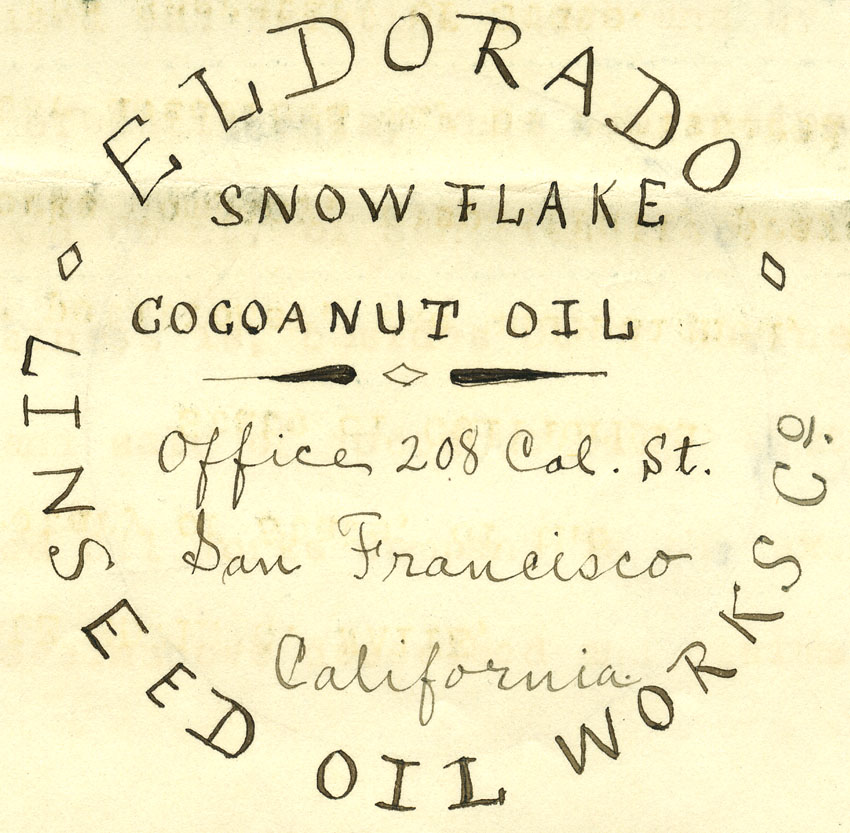 ELDORADO
SNOW FLAKE
COCOANUT OIL
Office 208 Cal. St.
San Francisco
California
LINSEED OIL WORKS Cº.